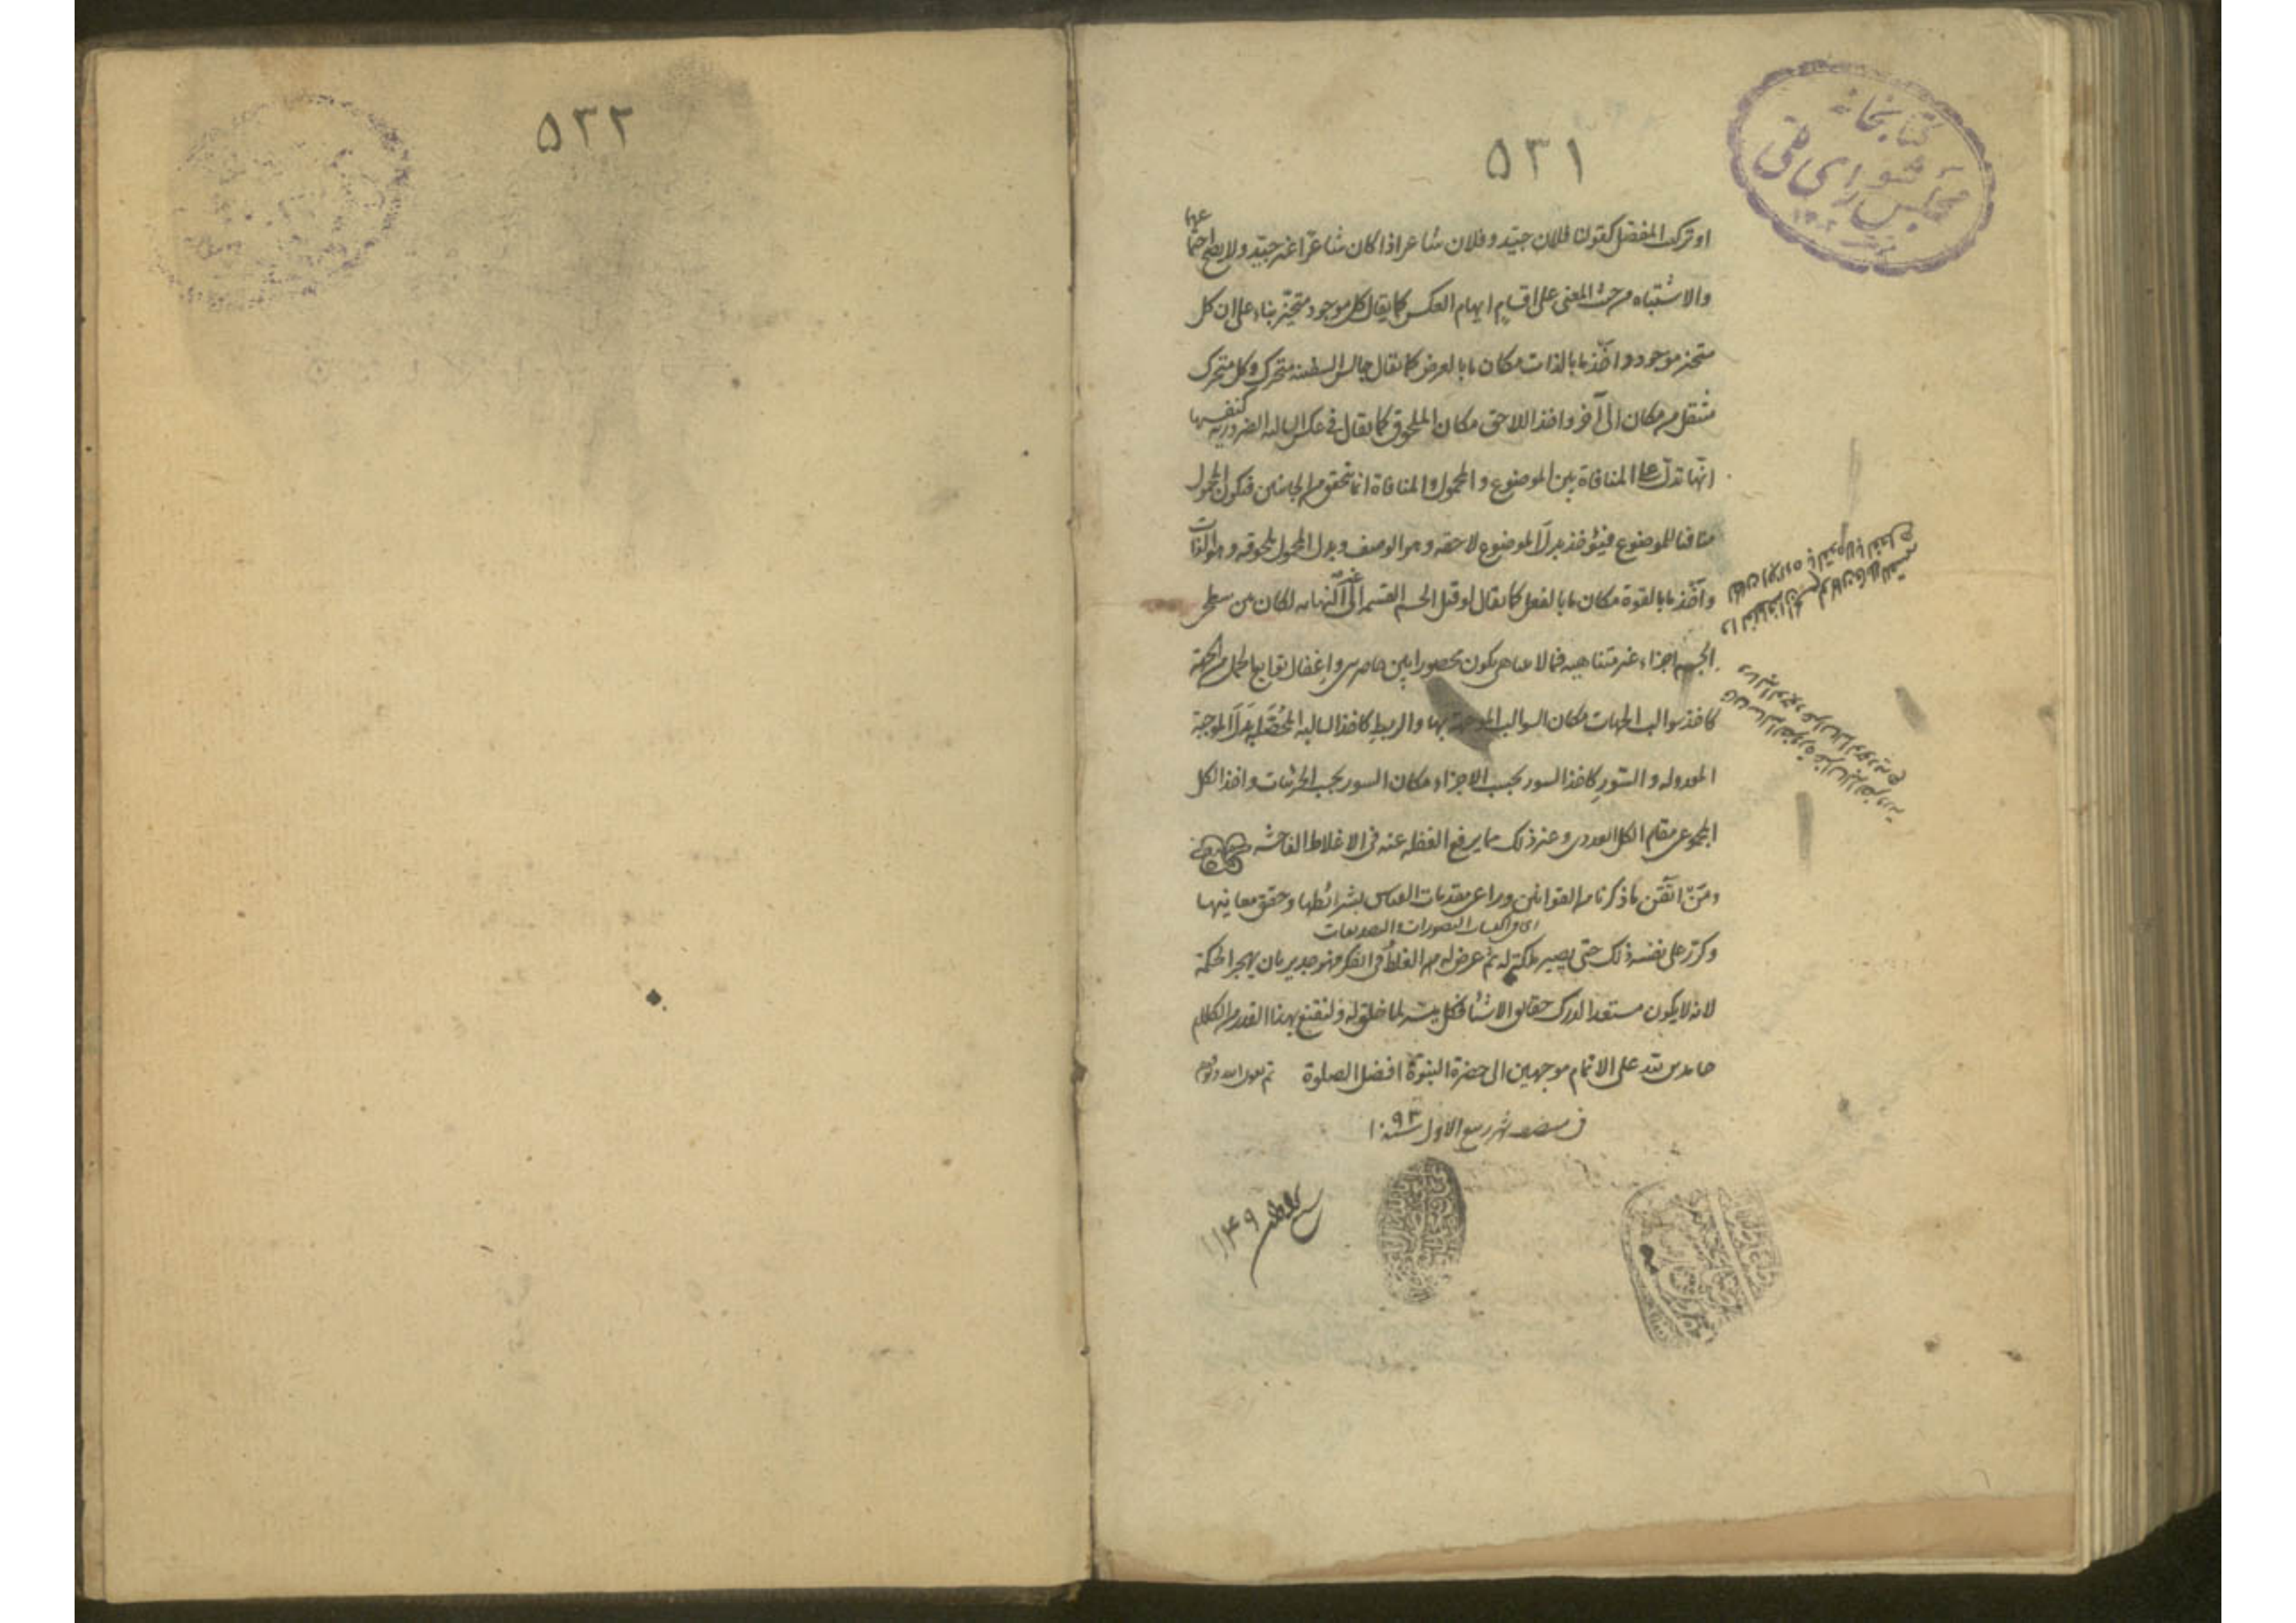 ٥٣١
كتابخانه
مجلس شوراى ملى
او ترك المفصل كقولنا فلان جيّد و فلان شاعر اذا كان شاعرا غير جيّد ولا يصح جمعا
والاشتباه من حيث المعنى على اقسام ايهام العكس كما يقال كل موجود متحيّز بناء على ان كل
متحيز موجود و اخذ ما بالذات مكان ما بالعرض كما يقال جالس السفينة متحرك وكل متحرك
منتقل من مكان الى آخر و اخذ اللاحق مكان الملحوق كما يقال فى عكس السالبه الضروريه كنفسها
انّها تدلّ على المنافاة بين الموضوع و المحمول والمنافاة انما تتحقق من الجانبين فيكون المحمول
منافيا للموضوع فيؤخذ بدل الموضوع لاحقه وهو الوصف وبدل المحمول ملحوقه وهو الذات
و اخذ ما بالقوة مكان ما بالفعل كما يقال لو قبل الجسم القسمه الى غير النهايه لكان بين سطحى
الجسم اجزاء غير متناهيه فما لا يتناهى يكون محصورا بين حاصرين و اغفال توابع الحمل من الجهة
كاخذ سوالب الجهات مكان السوالب الموجهة بها و الربط كاخذ السالبه المحصّله بدل الموجبة
المعدوله و السّور كاخذ السور بحسب الاجزاء مكان السور بحسب الجزئيات و اخذ الكل
المجموعى مقام الكل العددى و غير ذلك مما يرفع الغفله عنه فى الاغلاط الفاحشه
ومن اتقن ما ذكرنا من القوانين وراعى مقدمات القياس بشرائطها وحقق معانيها
اى فى اكتساب التصورات و التصديقات
و كرّر على نفسه ذلك حتى يصير ملكة له ثم عرض له من الغلط فى الفكر فهو جدير بان يهجر الحكمة
لانه لا يكون مستعدا لدرك حقائق الاشياء فكل ميسّر لما خلق له ولنقنع بهذا القدر من الكلام
حامدين لله على الاتمام موجهين الى حضرة النبوة افضل الصلوة تم بعون الله و توفيقه
فى شهر ربيع الاول سنة ١٠٩٣
١١٤٩
٥٣٢